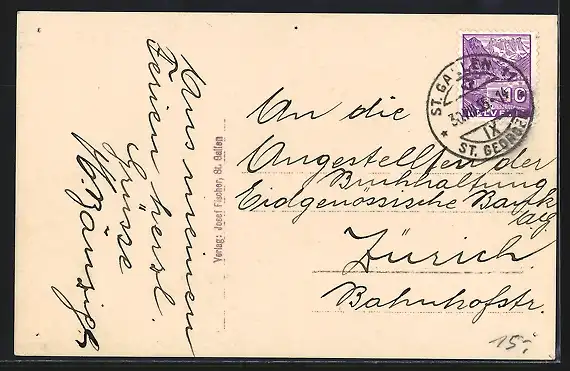 Aus meinen
Ferien herzl.
Grüsse
Verlag: Josef Fischer, St. Gallen
ST. GALLEN
ST. GEORGEN
IX
10
HELVETIA
An die
Angestellten der
Buchhaltung
Eidgenössische Bank
A.G.
Zürich
Bahnhofstr.
15.-